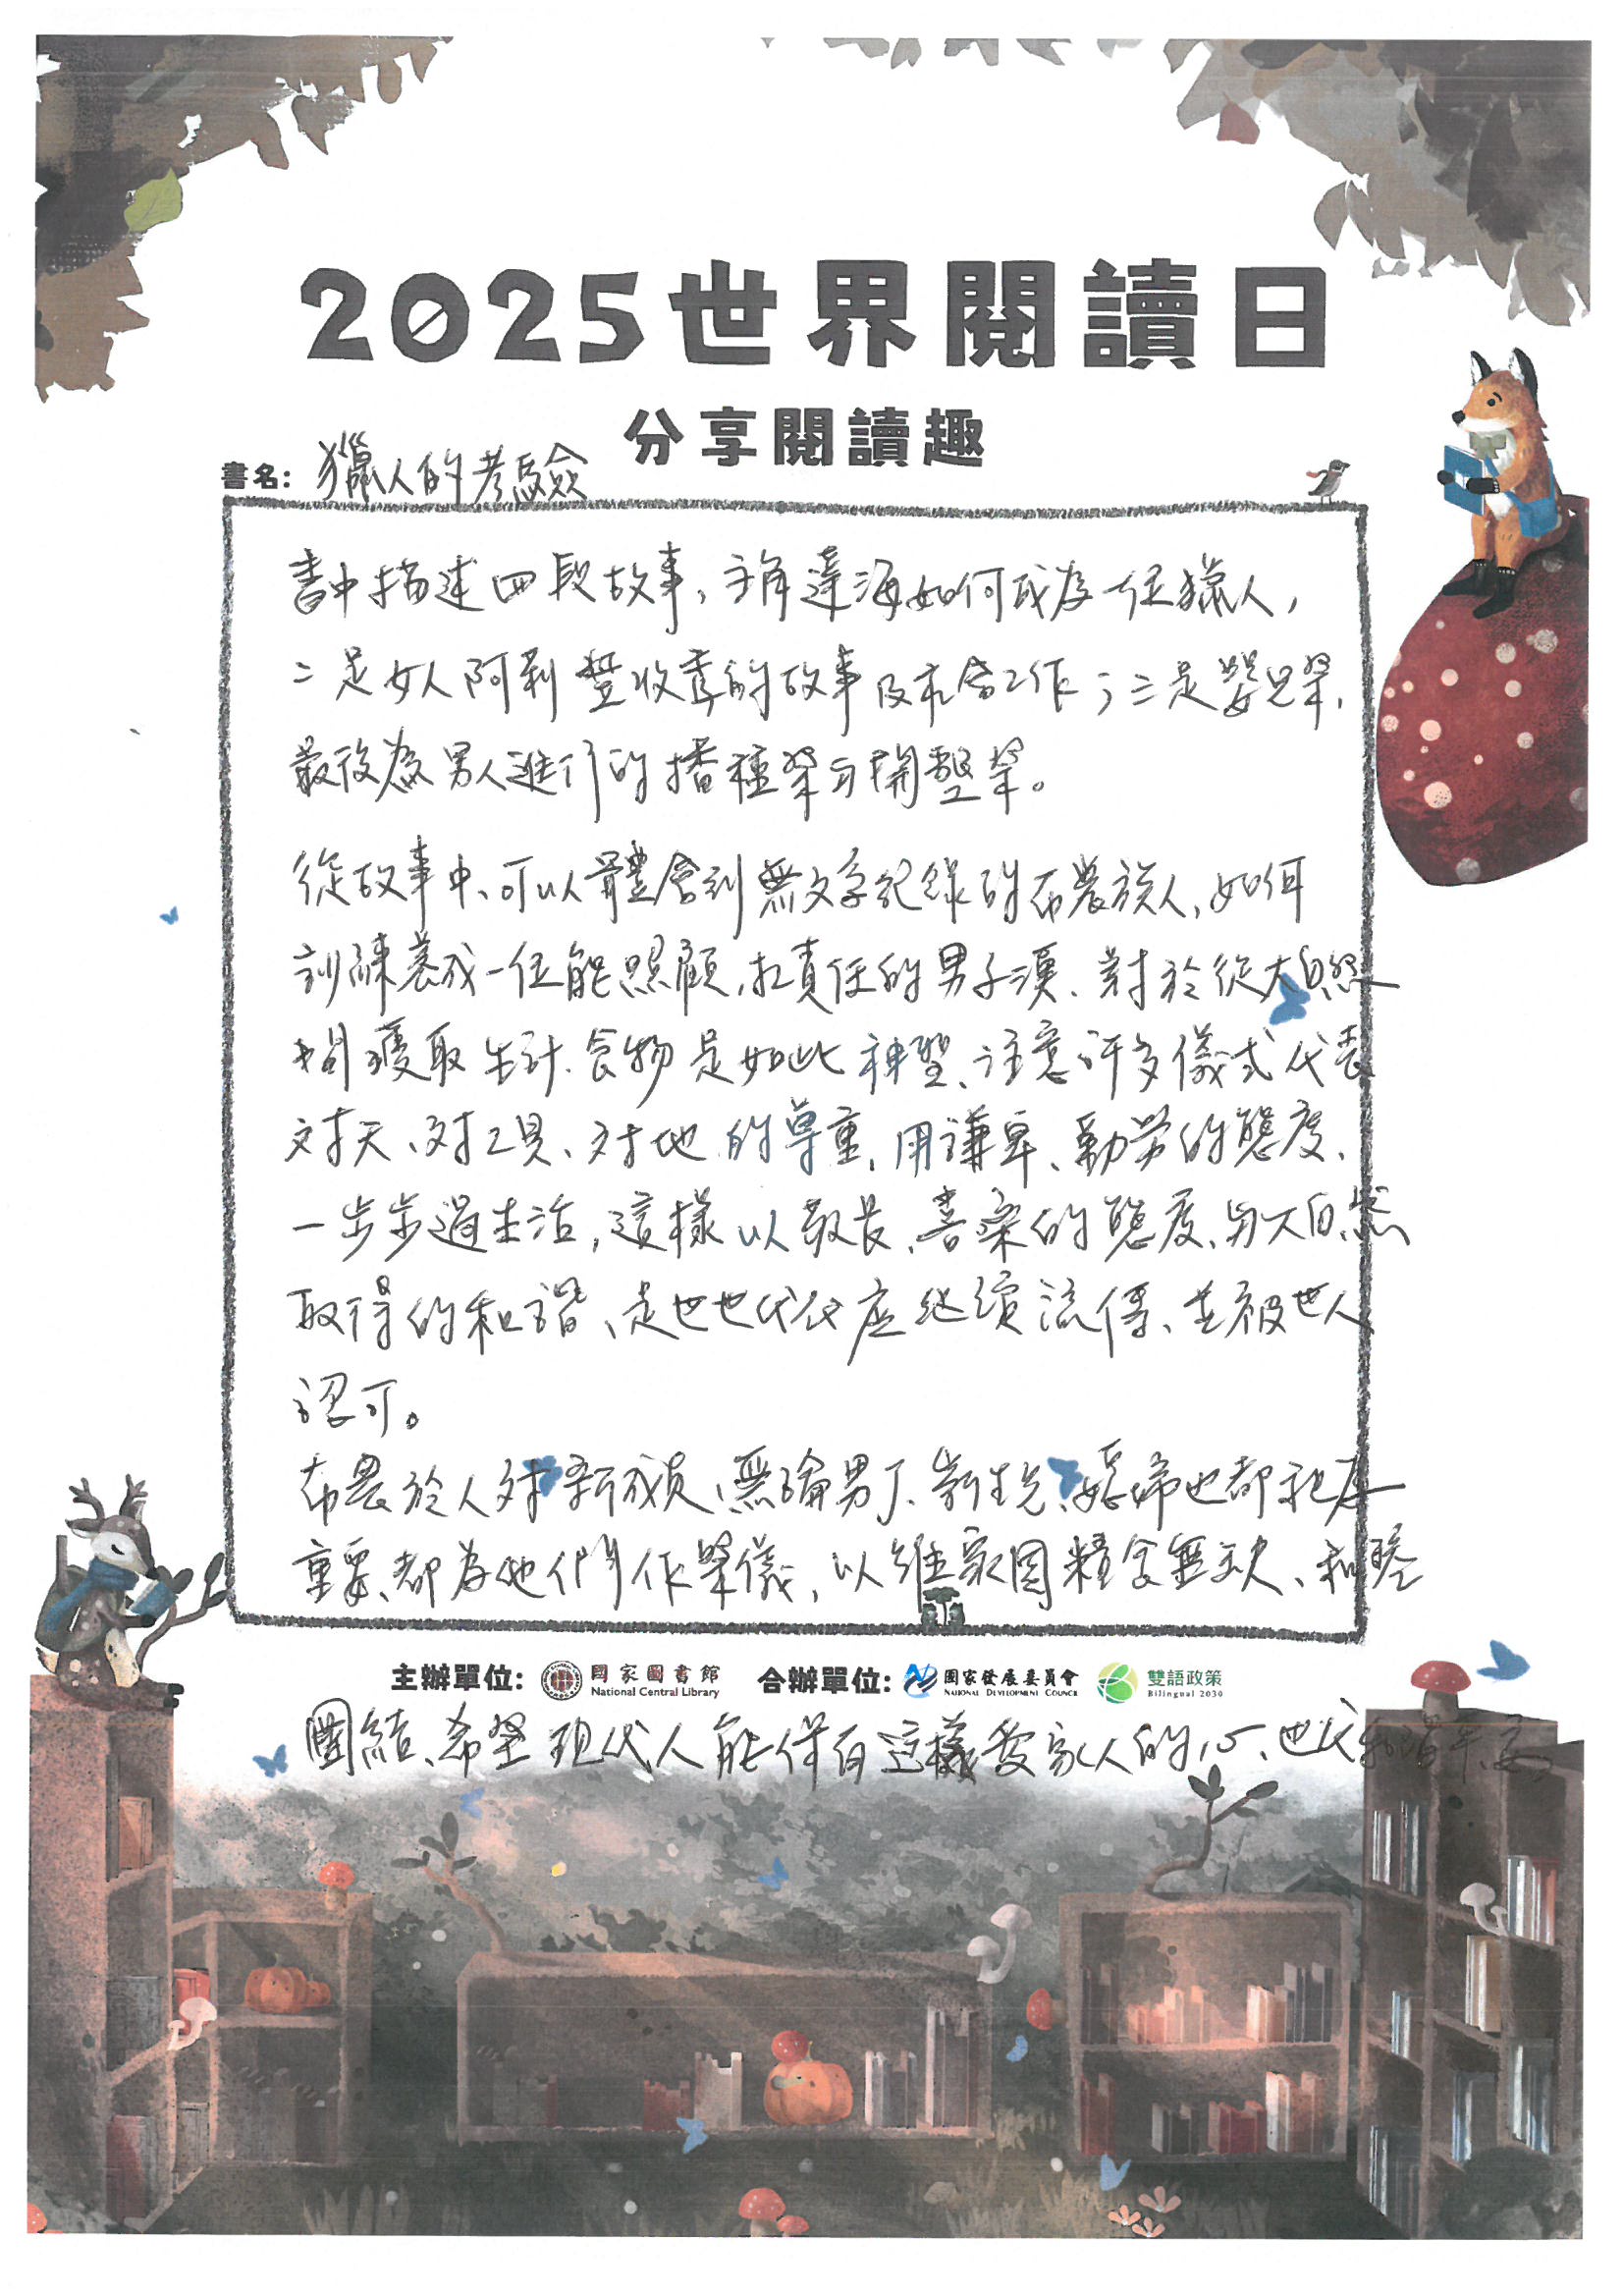 2025世界閱讀日
分享閱讀趣
書名: 獵人的考驗
書中描述四段故事,主角達海如何成為一位獵人,
二是女人阿莉豐收季的故事及社會工作;三是嬰兒祭,
最後為男人進行的播種祭與開墾祭。
從故事中、可以體會到無文字紀錄的布農族人,如何
訓練養成一位能照顧、扛責任的男子漢、對於從大自然
間獲取生計、食物是如此神聖、注意許多儀式代表
対天、対工具、対地的尊重,用謙卑、勤勞的態度、
一步步過生活,這樣以敬畏、善良的態度、與大自然
取得的和諧、是世世代代應繼續流傳、並被世人
認可。
布農族人対新成員、無論男丁、新生兒、媳婦也都視為
重要、都為他們作祭儀,以維家園糧食無缺、和睦
主辦單位: 國家圖書館 National Central Library 合辦單位: 國家發展委員會 National Development Council 雙語政策 Bilingual 2030
團結、希望現代人能保有這樣愛家人的心、世代和諧平安